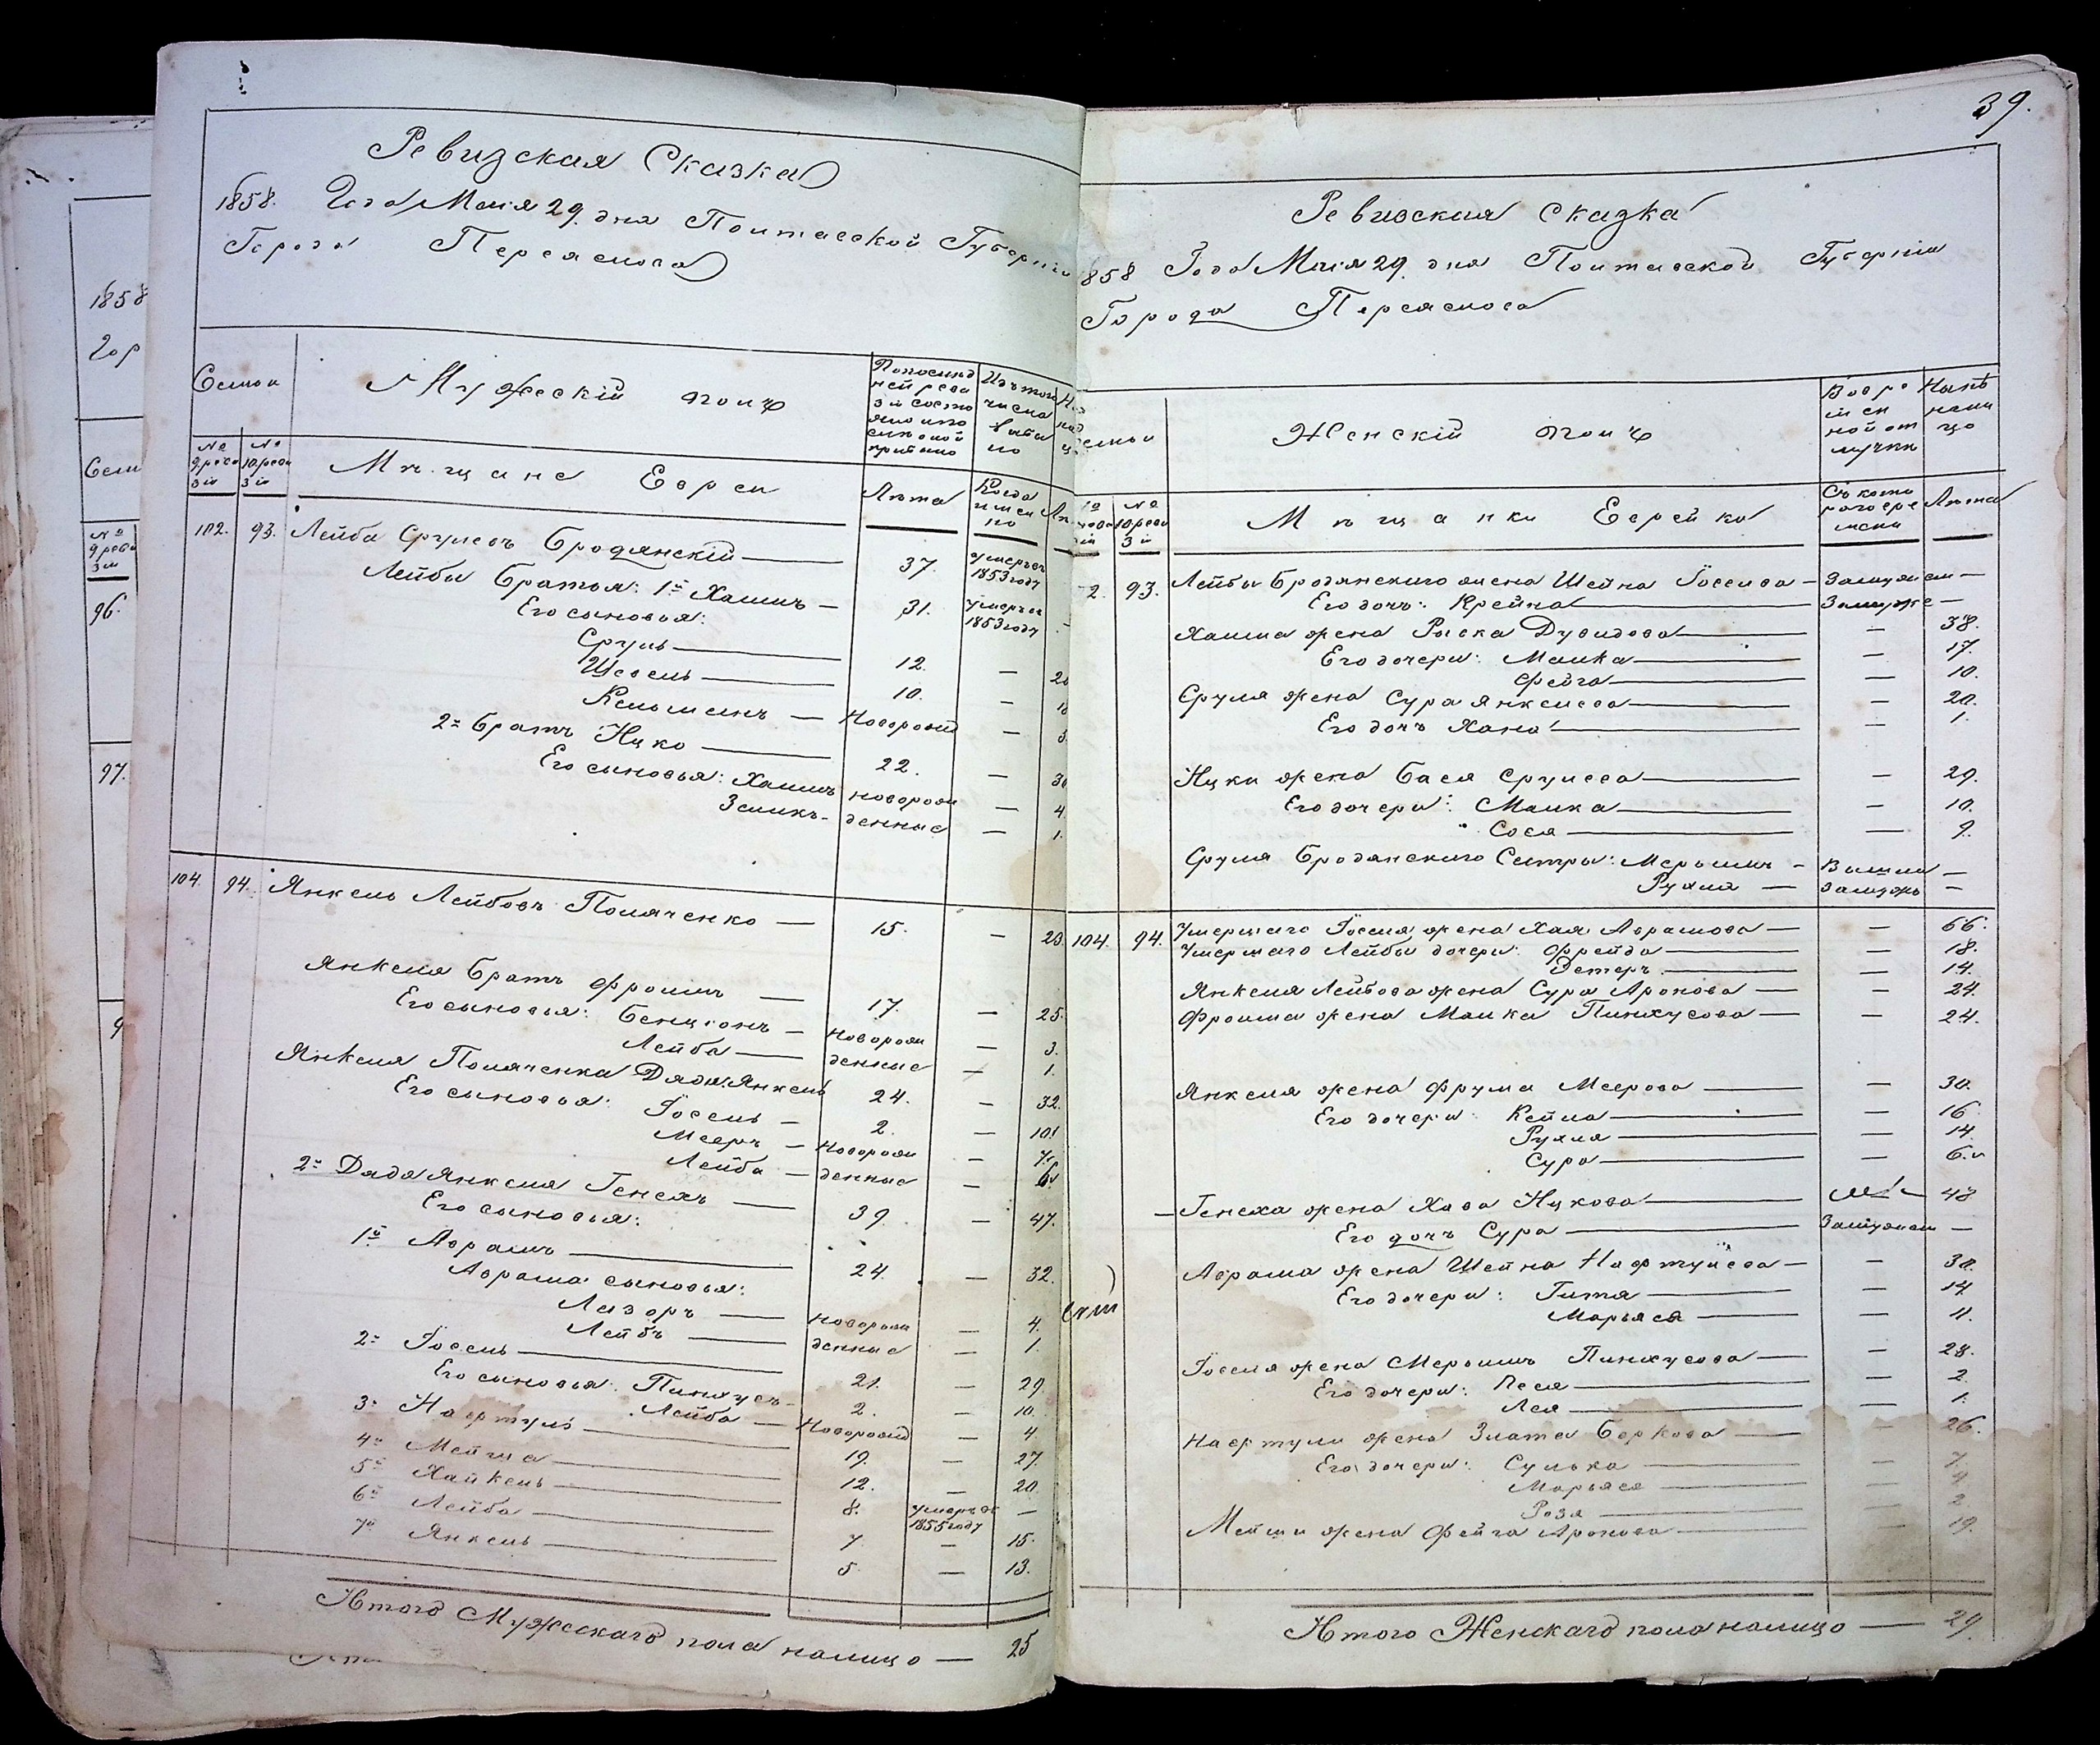 1858
Гор
Сем
№
9 реви
зіи
96.
97.
9
Ревизская Сказка
1858. Года Маія 29. дня Полтавской Губерніи
Города Переяслова
Семьи
Мужескій полъ
По послѣд
ней реви
зіи состо
яло и по
слѣ оной
прибыло
Изъ того
числа
выбы
ло
№
9 реви
зіи
№
10 реви
зіи
Мѣщане Евреи
Лѣта
Когда
имен
но
102. 93. Лейба Срулевъ Бродянскій — 37. умеръ въ
1853 году
Лейбы братья: 1й Хаимъ — 31. умеръ въ
1853 году
Его сыновья:
Сруль — 12. — 20
Шевель — 10. — 18
Кельманъ — Новорожд — 3.
2й братъ Ицко — 22. — 30
Его сыновья: Хаимъ новорож — 4.
Зеликъ — денные — 1.
104. 94. Янкель Лейбовъ Поляченко — 15. — 23.
Янкеля братъ Фроимъ — 17. — 25.
Его сыновья: Бенціонъ — новорож — 3.
Лейба — денные — 1.
Янкеля Поляченка Дядя Янкель 24. — 32.
Его сыновья: Іосель — 2. — 10.
Мееръ — новорож — 7.
Лейба — денные — 6.
2й Дядя Янкеля Генехъ — 39. — 47.
Его сыновья:
1й Аврамъ — 24. — 32.
Аврама сыновья:
Лазоръ — новорож — 4.
Лейбъ — денные — 1.
2й Іосель — 21. — 29.
Его сыновья: Пинхусъ — 2. — 10.
Лейба — Новорожд — 4.
3й Нафтуль — 19. — 27.
4й Мейша — 12. — 20.
5й Хайкель — 8. умеръ въ —
1855 году
6й Лейба — 7. — 15.
7й Янкель — 5. — 13.
Итого Мужескаго пола налицо — 25
39.
Ревизская Сказка
1858 Года Маія 29. дня Полтавской Губерніи
Города Переяслова
Женскій полъ
Во вре
мен
ной от
лучки
Нынѣ
нали
цо
№
10 реви
зіи
Мѣщанки Еврейки
Съ кото
раго вре
мени
Лѣта
2. 93. Лейбы Бродянскаго жена Шейна Іоселева — Замужем —
Его дочь: Крейна — Замуже —
Хаима жена Рыска Дувидова — — 38.
Его дочери: Малка — — 17.
Фейга — — 10.
Сруля жена Сура Янкелева — — 20.
Его дочь Хана — — 1.
Ицки жена Бася Срулева — — 29.
Его дочери: Малка — — 10.
Сося — — 9.
Сруля Бродянскаго Сестры: Мерьямъ — Вышли —
Рухля — замужъ —
104. 94. Умершаго Іоселя жена Хая Аврамова — — 66.
Умершаго Лейбы дочери: Фрейда — — 18.
Эстеръ — — 14.
Янкеля Лейбова жена Сура Аронова — — 24.
Фроима жена Малка Пинхусова — — 24.
Янкеля жена Фрума Меерова — — 30.
Его дочери: Кейла — — 16.
Рухля — — 14.
Сура — — 6.
Генеха жена Хава Ицкова — 48
Его дочь Сура — Замужем —
Аврама жена Шейна Нафтулева — — 30.
Его дочери: Гитля — — 14
Марьяся — — 11.
Іоселя жена Мерьямъ Пинхусова — — 28.
Его дочери: Песя — — 2.
Лея — — 1.
Нафтули жена Злата Беркова — — 26.
Его дочери: Сулька — — 7.
Марьяся — — 4
Роза — — 2.
Мейши жена Фейга Аронова — — 19.
Итого Женскаго пола налицо — 29.